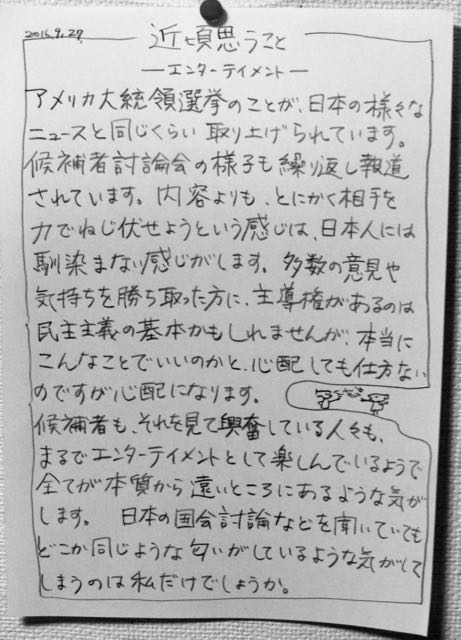 2016.9.27.
近頃思うこと
—エンターテイメント—
アメリカ大統領選挙のことが、日本の様々な
ニュースと同じくらい取り上げられています。
候補者討論会の様子も繰り返し報道
されています。内容よりも、とにかく相手を
力でねじ伏せようという感じは、日本人には
馴染まない感じがします。多数の意見や
気持ちを勝ち取った方に、主導権があるのは
民主主義の基本かもしれませんが、本当に
こんなことでいいのかと、心配しても仕方ない
のですが心配になります。
候補者も、それを見て興奮している人々も、
まるでエンターテイメントとして楽しんでいるようで
全てが本質から遠いところにあるような気が
します。 日本の国会討論などを聞いていても
どこか同じような匂いがしているような気がして
しまうのは私だけでしょうか。